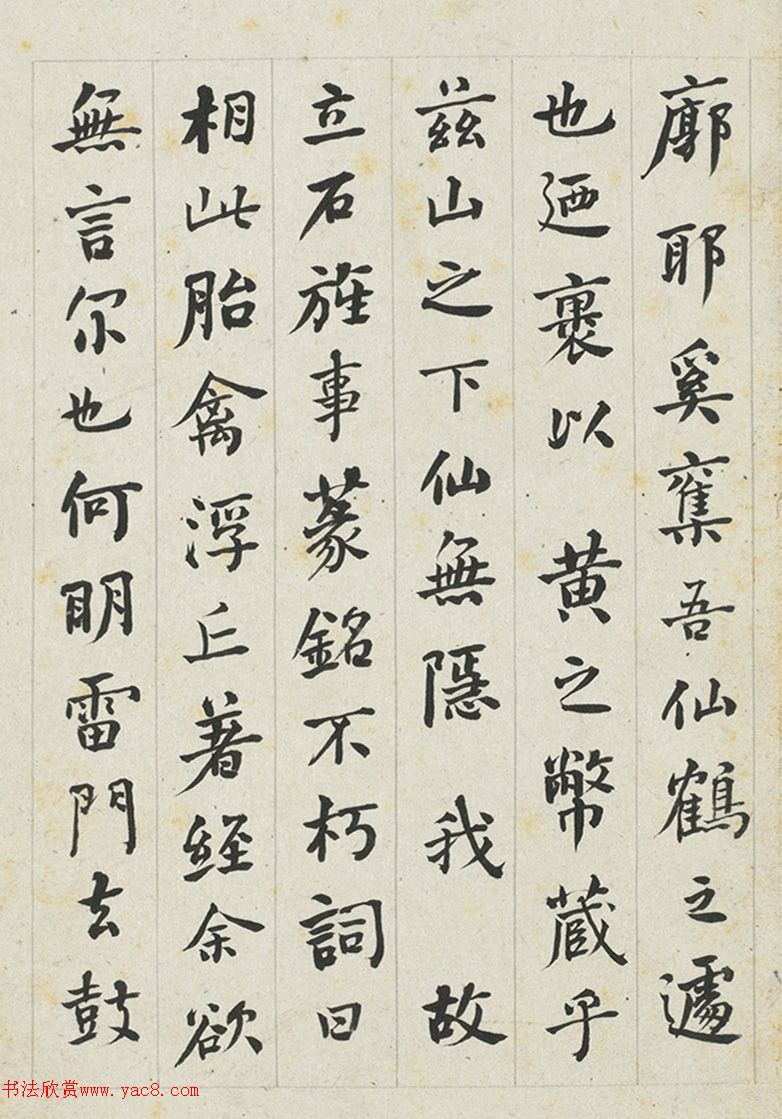 廓耶奚奪吾仙鶴之遽
也迺裹以 黄之幣藏乎
茲山之下仙無隱 我故
立石旌事篆銘不朽詞曰
相此胎禽浮丘著經余欲
無言尔也何明雷門去鼓
书法欣赏www.yac8.com